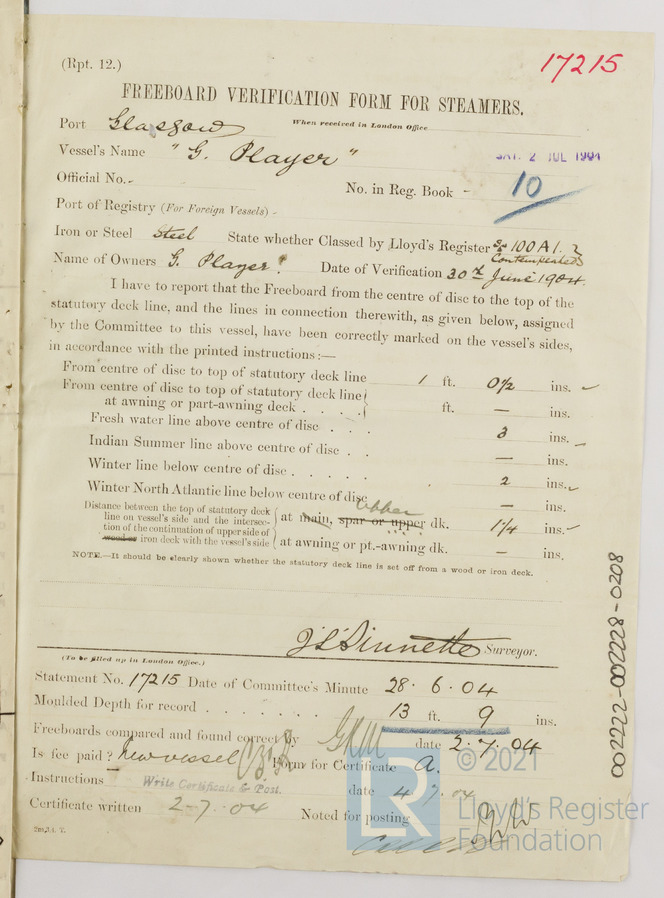 (Rpt. 12.)
17215
FREEBOARD VERIFICATION FORM FOR STEAMERS.
Port Glasgow When received in London Office
Vessel's Name "G. Player" SAT. 2 JUL 1904
Official No. - No. in Reg. Book - 10
Port of Registry (For Foreign Vessels) -
Iron or Steel Steel State whether Classed by Lloyd's Register 100 A1. Contemplated
Name of Owners G. Player. Date of Verification 30th June 1904.
I have to report that the Freeboard from the centre of disc to the top of the
statutory deck line, and the lines in connection therewith, as given below, assigned
by the Committee to this vessel, have been correctly marked on the vessel's sides,
in accordance with the printed instructions:—
From centre of disc to top of statutory deck line 1 ft. 0½ ins.
From centre of disc to top of statutory deck line
at awning or part-awning deck . . . . ft. — ins.
Fresh water line above centre of disc . . . 3 ins.
Indian Summer line above centre of disc . . — ins.
Winter line below centre of disc . . . . . 2 ins.
Winter North Atlantic line below centre of disc — ins.
Distance between the top of statutory deck
line on vessel's side and the intersec-
tion of the continuation of upper side of
wood or iron deck with the vessel's side
at main, spar or upper dk. upper 1¼ ins.
at awning or pt.-awning dk. — ins.
NOTE.—It should be clearly shown whether the statutory deck line is set off from a wood or iron deck.
Surveyor.
(To be filled up in London Office.)
Statement No. 17215 Date of Committee's Minute 28.6.04
Moulded Depth for record . . . . . . . 13 ft. 9 ins.
Freeboards compared and found correct by date 2.7.04
Is fee paid? New vessel Form for Certificate A.
Instructions Write Certificate & Post. date 4.7.04
Certificate written 2-7.04 Noted for posting
002222-002228-0208
© 2021
LR
Lloyd's Register
Foundation